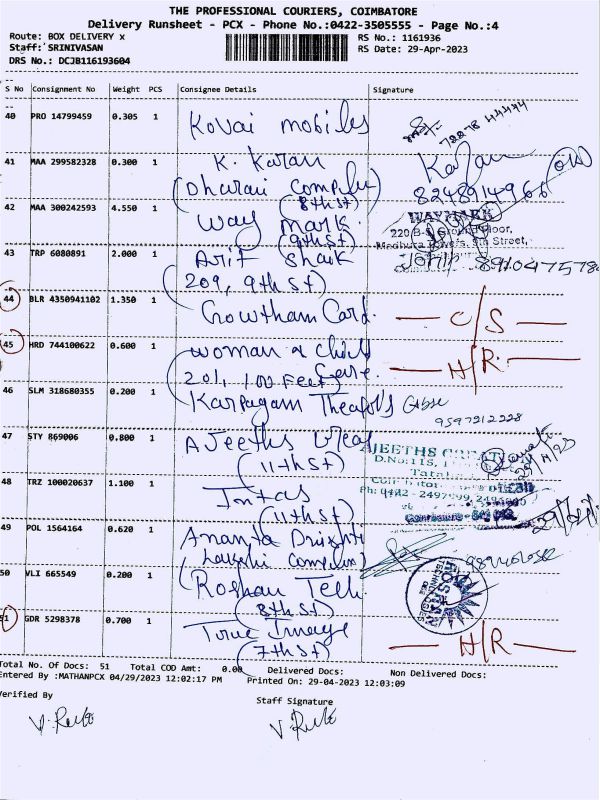 THE PROFESSIONAL COURIERS, COIMBATORE
Delivery Runsheet - PCX - Phone No.:0422-3505555 - Page No.:4
Route: BOX DELIVERY x
RS No.: 1161936
Staff: SRINIVASAN
RS Date: 29-Apr-2023
DRS No.: DCJB116193604
S No Consignment No Weight PCS Consignee Details Signature
40 PRO 14799459 0.305 1 Kovai mobiles
41 MAA 299582328 0.300 1 K. Karan
(Dharani Complex)
(8th St) 8248914966
42 MAA 300242593 4.550 1 Way Mark
(9th St)
WAYMARK
43 TRP 6080891 2.000 1 Arif Shaik
(209, 9th St)
44 BLR 4350941102 1.350 1 Gowtham Card. C/S
45 HRD 744100622 0.600 1 Woman & Child Care
(201, 100 Feet) H/R
46 SLM 318680355 0.200 1 Karpagam
9597912228
47 STY 869006 0.800 1 Ajeeths
(11th St)
AJEETHS CREATION
48 TRZ 100020637 1.100 1 Intas
(11th St)
49 POL 1564164 0.620 1 Ananta
50 VLI 665549 0.200 1 Roshan Tech
(8th St)
51 GDR 5298378 0.700 1 True Image
(7th St) H/R
Total No. Of Docs: 51 Total COD Amt: 0.00 Delivered Docs: Non Delivered Docs:
Entered By :MATHANPCX 04/29/2023 12:02:17 PM Printed On: 29-04-2023 12:03:09
Verified By
Staff Signature